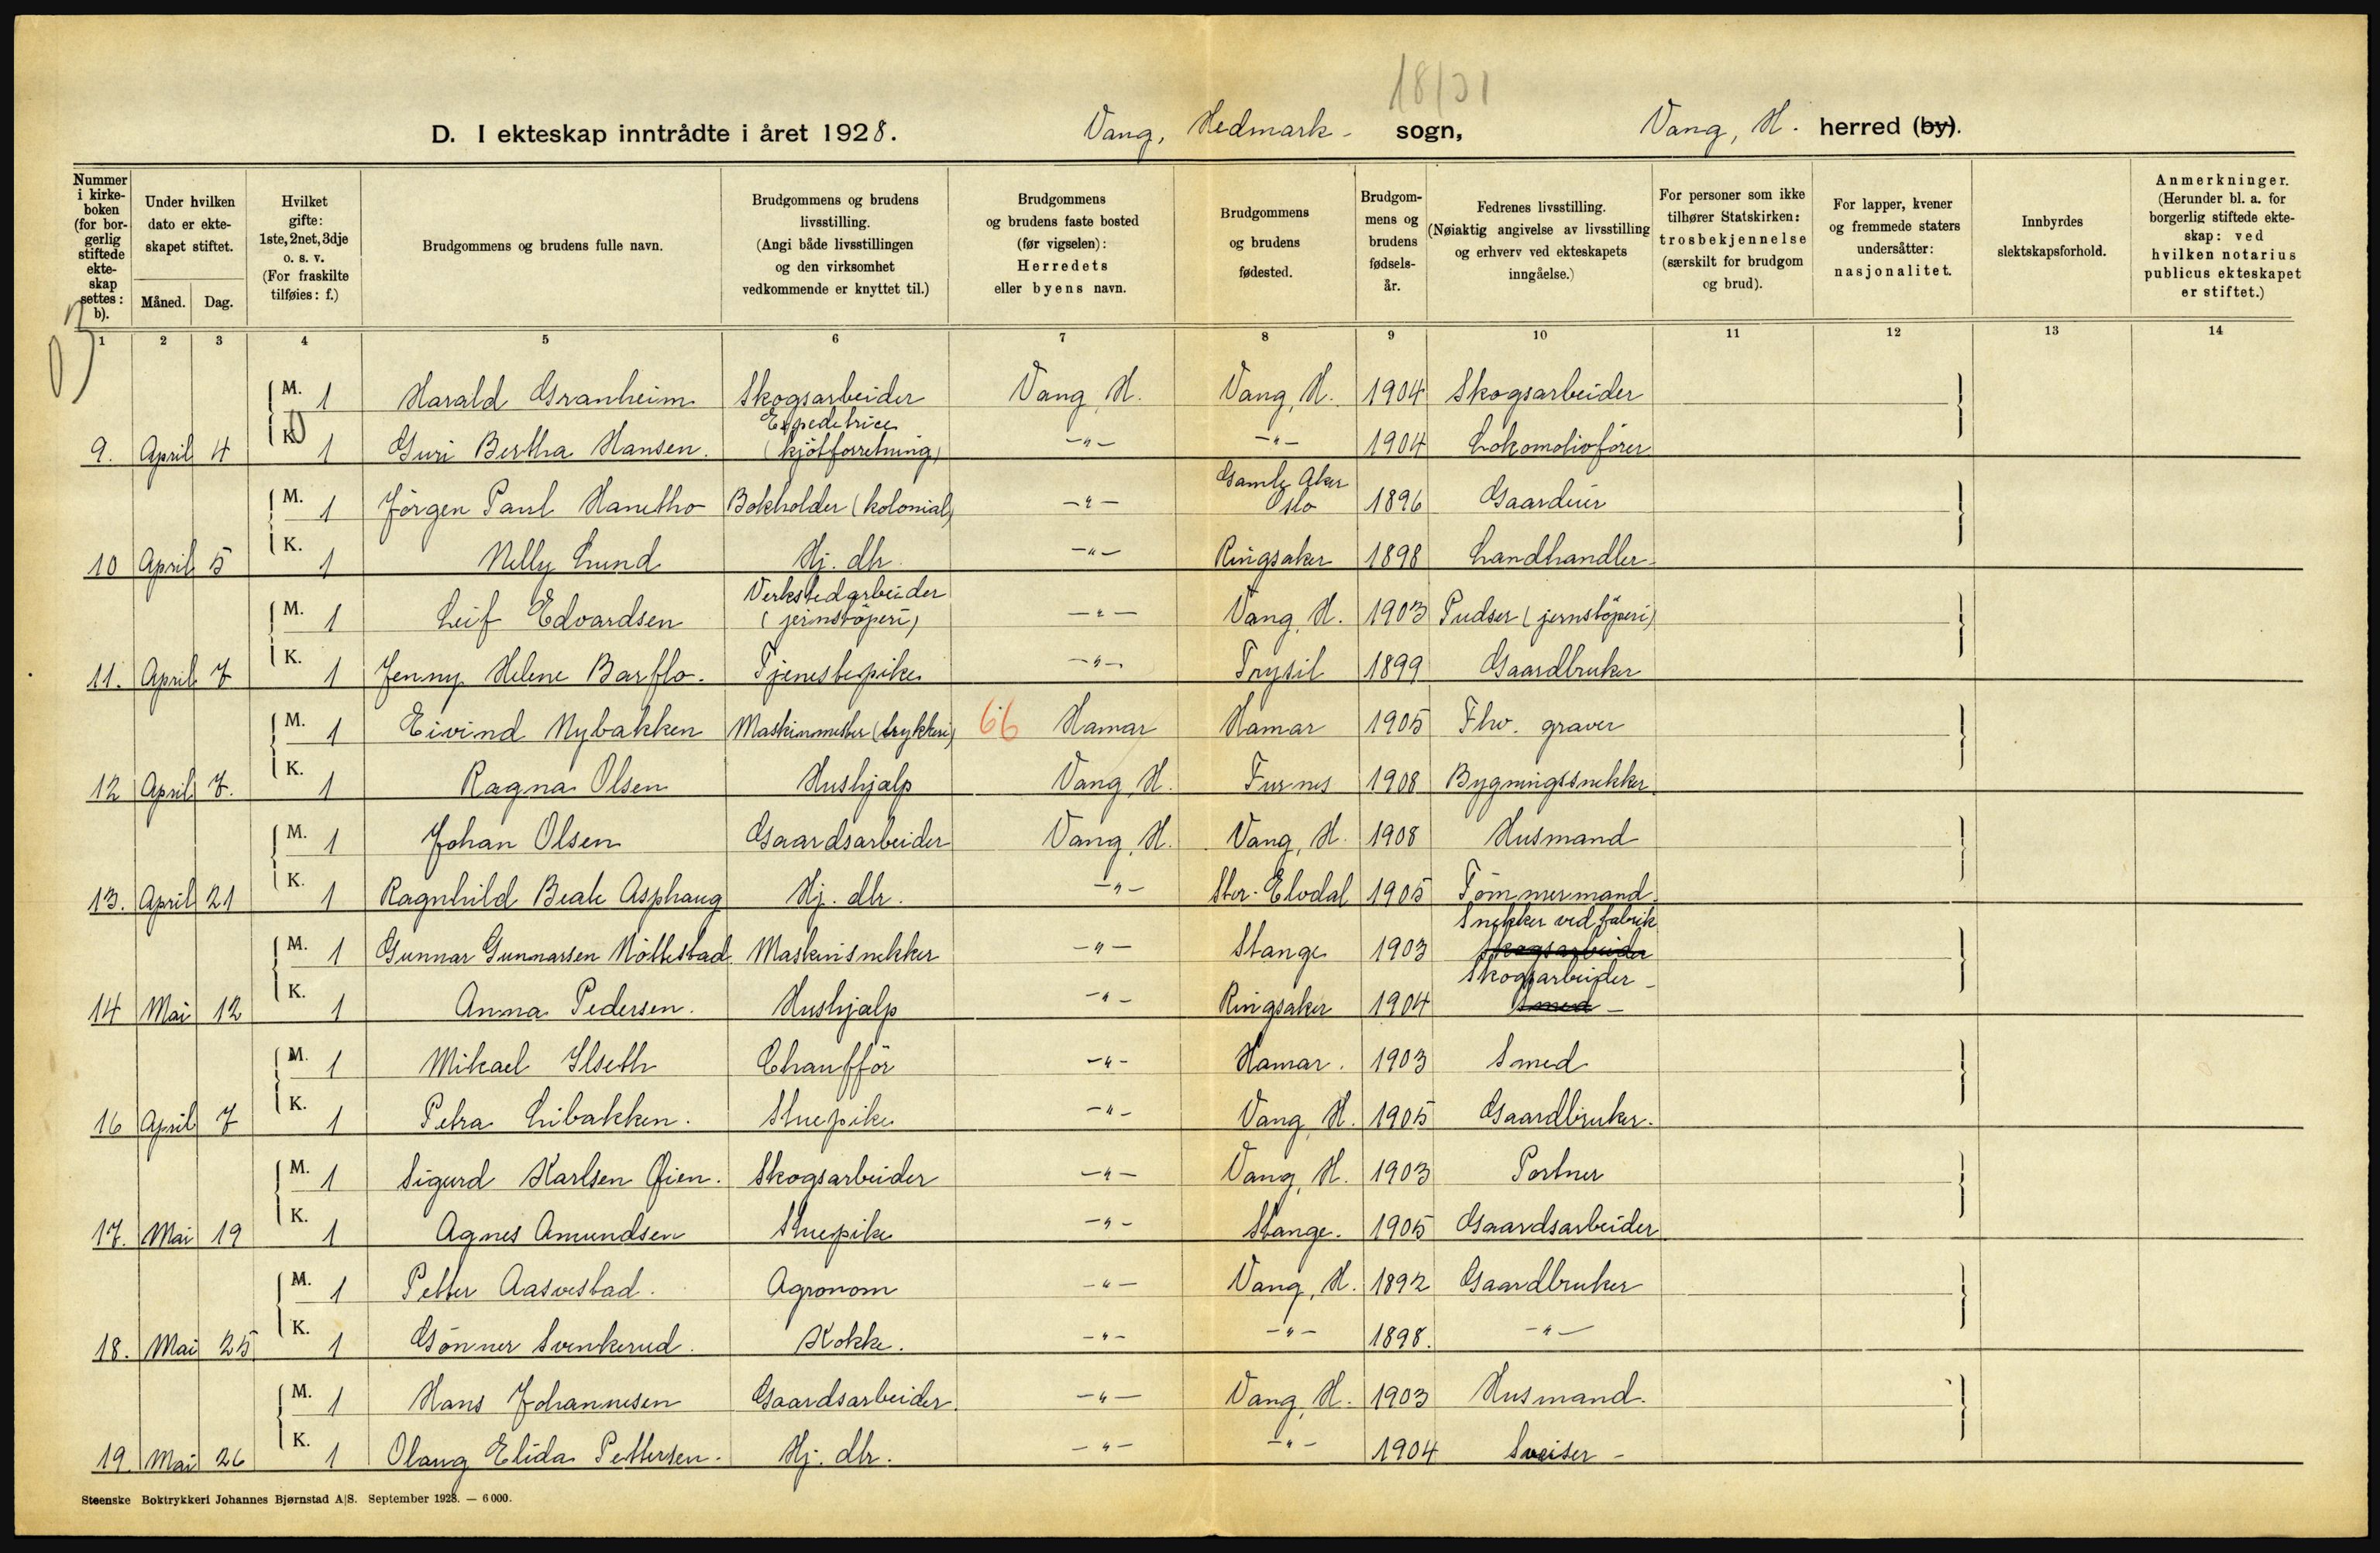 18/31
D. I ekteskap inntrådte i året 1928. Vang, Hedmark - sogn, Vang, H. herred (by).
Nummer i kirke-boken (for bor-gerlig stiftede ekte-skap settes: b).
Under hvilken dato er ekte-skapet stiftet.
Måned. Dag.
Hvilket gifte: 1ste, 2net, 3dje o. s. v. (For fraskilte tilføies: f.)
Brudgommens og brudens fulle navn.
Brudgommens og brudens livsstilling. (Angi både livsstillingen og den virksomhet vedkommende er knyttet til.)
Brudgommens og brudens faste bosted (før vigselen): Herredets eller byens navn.
Brudgommens og brudens fødested.
Brudgom-mens og brudens fødsels-år.
Fedrenes livsstilling. (Nøiaktig angivelse av livsstilling og erhverv ved ekteskapets inngåelse.)
For personer som ikke tilhører Statskirken: trosbekjennelse (særskilt for brudgom og brud).
For lapper, kvener og fremmede staters undersåtter: nasjonalitet.
Innbyrdes slektskapsforhold.
Anmerkninger. (Herunder bl. a. for borgerlig stiftede ekte-skap: ved hvilken notarius publicus ekteskapet er stiftet.)
1 2 3 4 5 6 7 8 9 10 11 12 13 14
M. 1 Harald Granheim Skogsarbeider Vang, H. Vang, H. 1904 Skogsarbeider
9. April 4 K. 1 Guri Bertha Hansen. Expeditrice (kjötforretning) -"- -"- 1904 Lokomotivförer
M. 1 Jörgen Paul Hanetho Bokholder (kolonial) -"- Gamle Aker Oslo 1896 Gaardeier
10 April 5 K. 1 Nelly Lund Hj. dtr. -"- Ringsaker 1898 Landhandler
M. 1 Leif Edvardsen Verkstedarbeider (jernstöperi) -"- Vang, H. 1903 Pudser (jernstöperi)
11. April 7 K. 1 Jenny Helene Barflo. Tjenestepike -"- Trysil 1899 Gaardbruker
M. 1 Eivind Nybakken Maskinmester (trykkeri) 66 Hamar Hamar 1905 Fhv. graver
12 April 7. K. 1 Ragna Olsen Hushjalp Vang, H. Furnes 1908 Bygningssnekker
M. 1 Johan Olsen Gaardsarbeider Vang, H. Vang, H. 1908 Husmand
13. April 21 K. 1 Ragnhild Beate Asphaug Hj. dtr. -"- Stor-Elvdal 1905 Tömmermand
M. 1 Gunnar Gunnarsen Nöttestad Maskinsnekker -"- Stange 1903 Snekker ved fabrik Skogsarbeider
14 Mai 12 K. 1 Anna Pedersen. Hushjalp -"- Ringsaker 1904 Skogsarbeider - Smed -
M. 1 Mikael Ilseth Chaufför -"- Hamar. 1903 Smed
16 April 7 K. 1 Petra Libakken. Stuepike -"- Vang, H. 1905 Gaardbruker.
M. 1 Sigurd Karlsen Öien. Skogsarbeider -"- Vang, H. 1903 Portner
17. Mai 19 K. 1 Agnes Amundsen Stuepike -"- Stange. 1905 Gaardsarbeider
M. 1 Petter Aasvestad. Agronom -"- Vang, H. 1892 Gaardbruker
18. Mai 25 K. 1 Gönner Svenkerud. Kokke. -"- -"- 1898. -"-
M. 1 Hans Johannesen Gaardsarbeider -"- Vang, H. 1903 Husmand.
19. Mai 26 K. 1 Olaug Elida Pettersen. Hj. dtr. -"- -"- 1904 Sveiser -
Steenske Boktrykkeri Johannes Bjørnstad A|S. September 1928. — 6000.